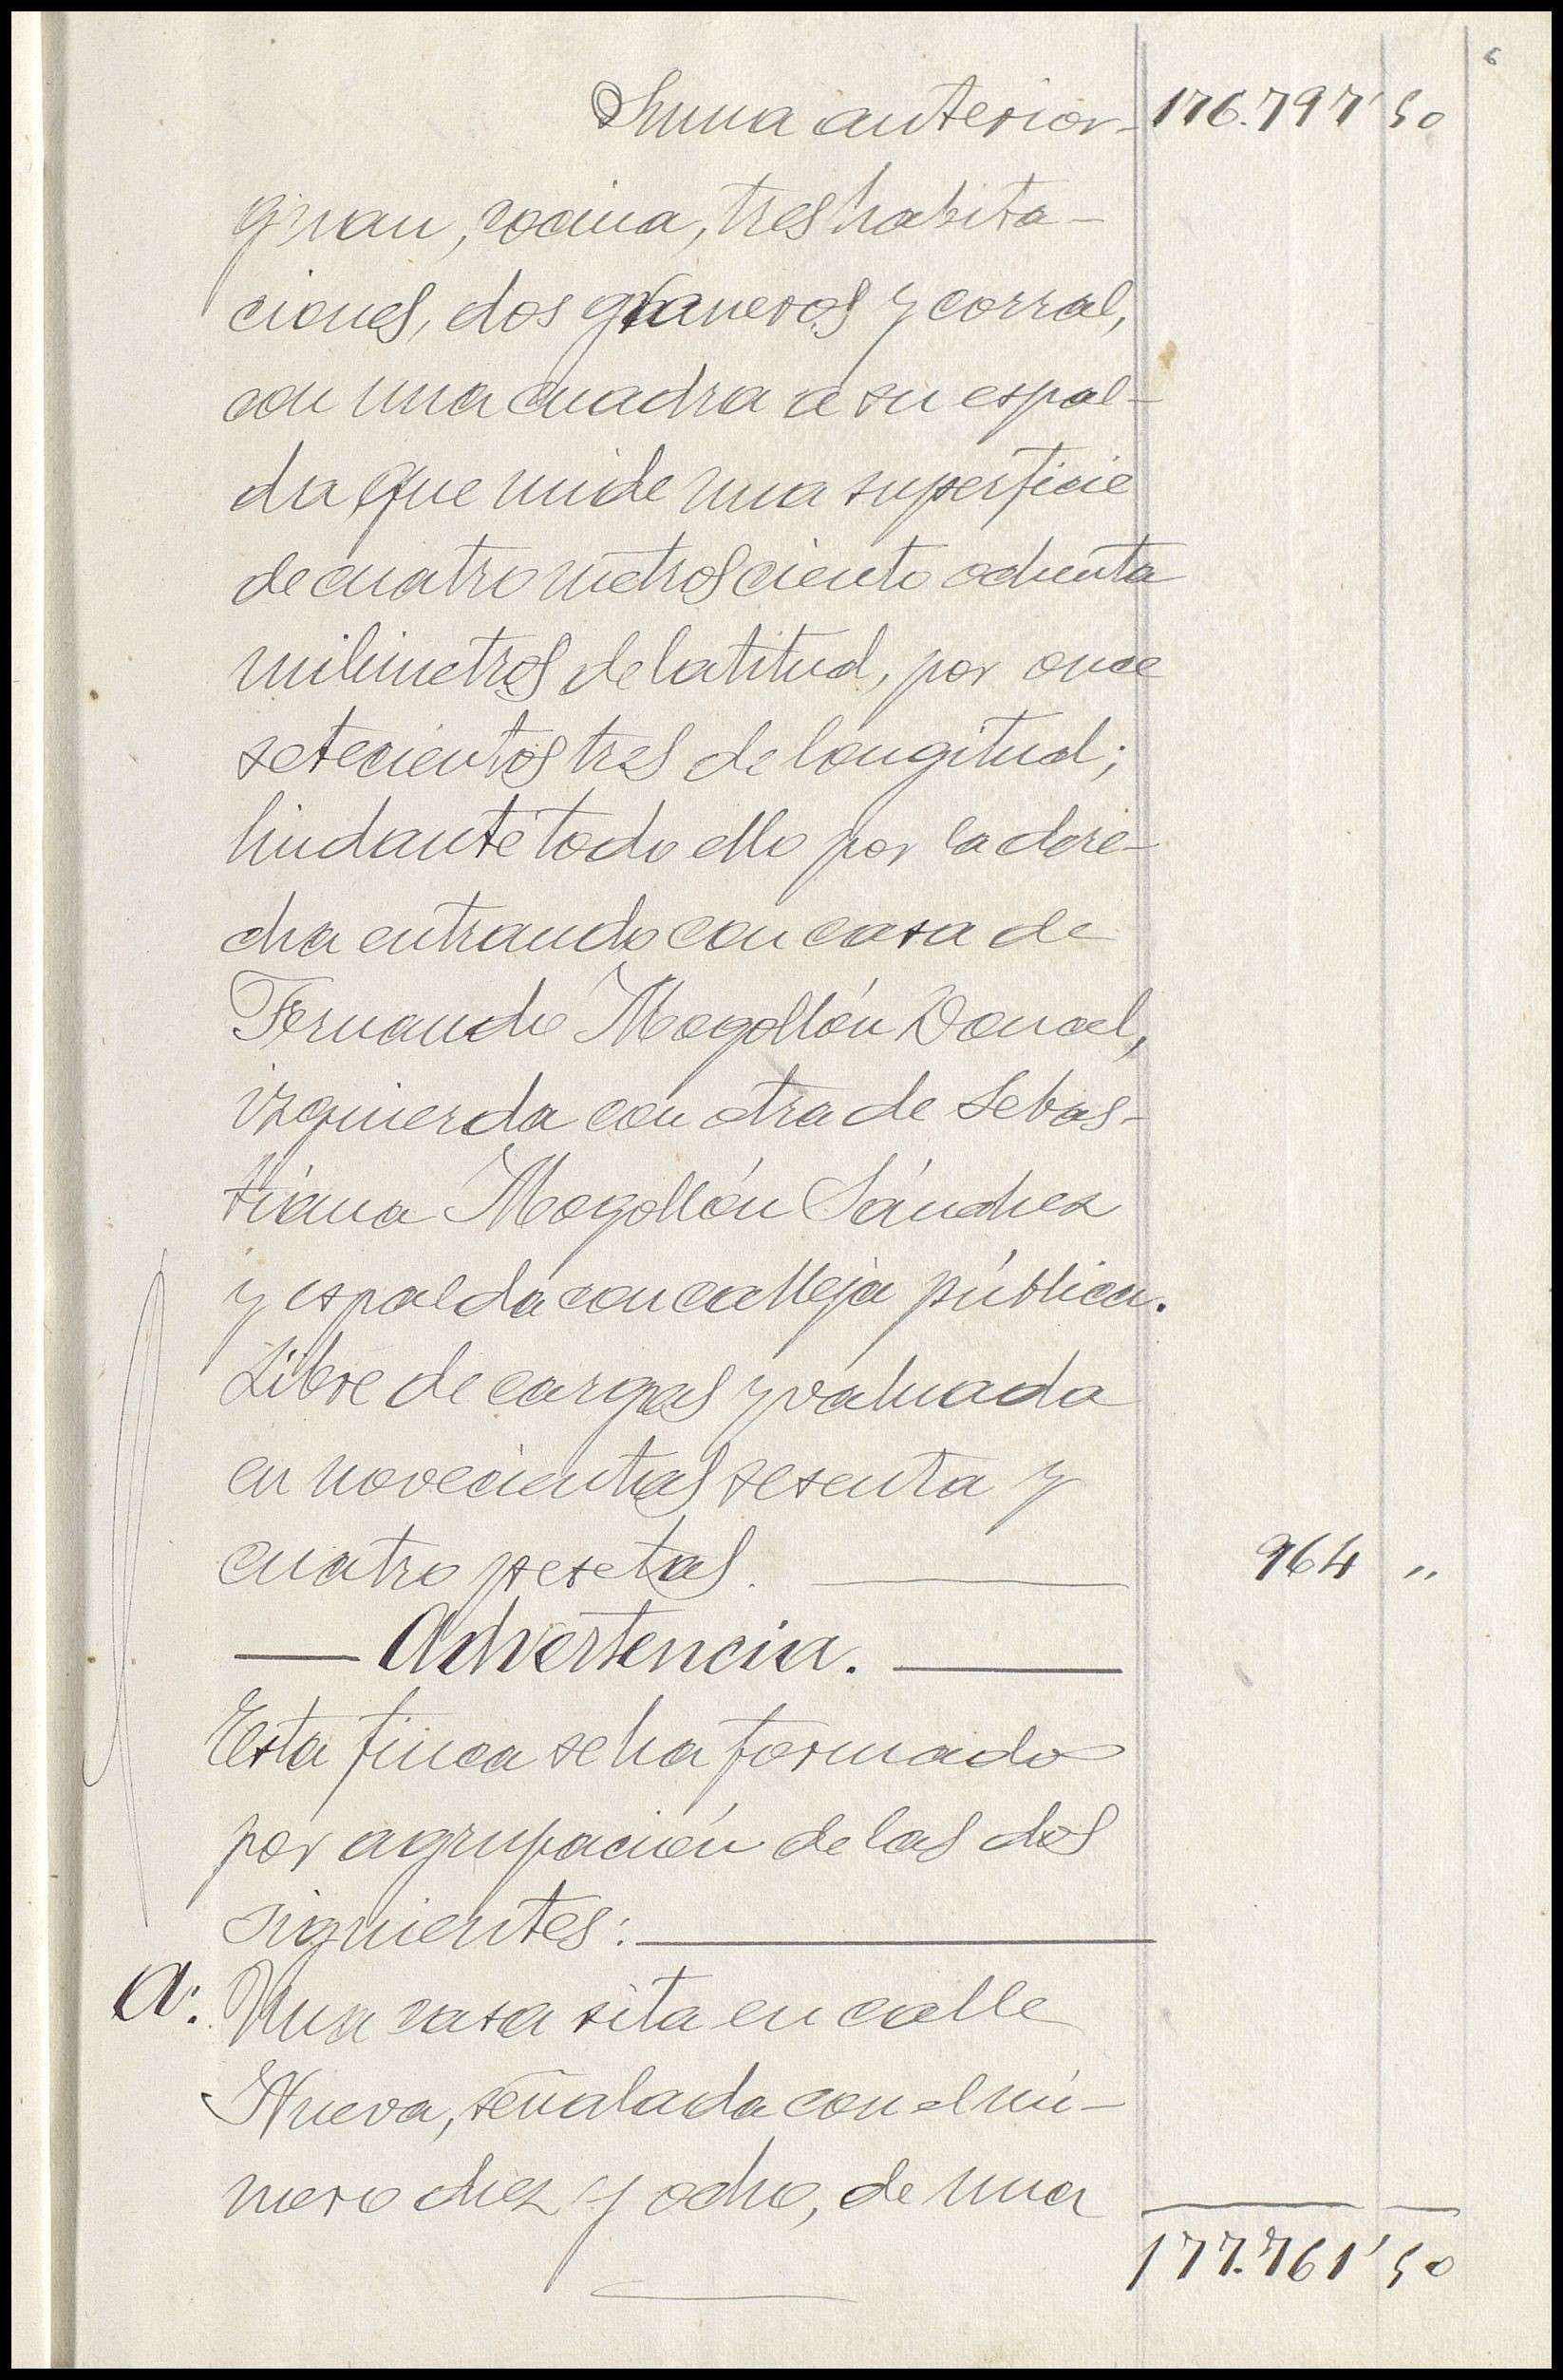 6
Suma anterior- 176.797'50
guan, cocina, tres habita-
ciones, dos graneros y corral,
con una cuadra a su espal-
da que mide una superficie
de cuatro metros ciento ochenta
milimetros de latitud, por once
setecientos tres de longitud;
lindante todo ello por la dere-
cha entrando con casa de
Fernando Mogollón Doncel,
izquierda con otra de Sebas-
tiana Mogollón Sánchez
y espalda con calleja pública.
Libre de cargas y valuada
en novecientas sesenta y
cuatro pesetas. 964 "
Advertencia.
Esta finca se ha formado
por agrupación de las dos
siguientes:
A: Una casa sita en calle
Nueva, señalada con el nú-
mero diez y ocho, de una
177.761'50